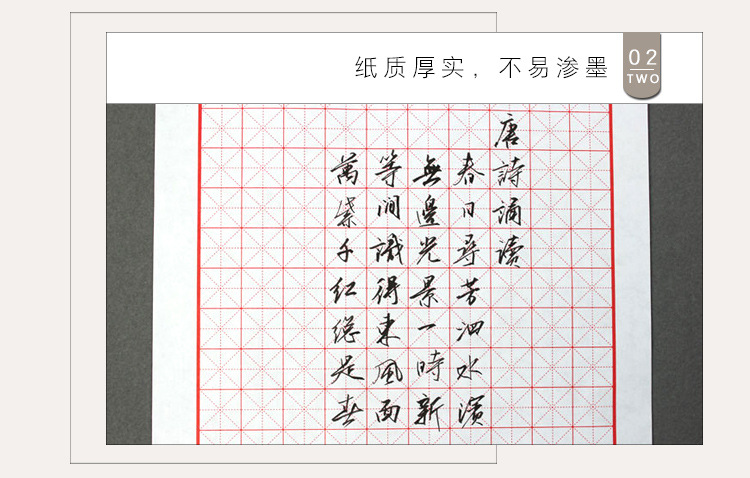 纸质厚实，不易渗墨
02
TWO
唐詩誦讀
春日尋芳泗水濱
無邊光景一時新
等間識得東風面
萬紫千紅總是春